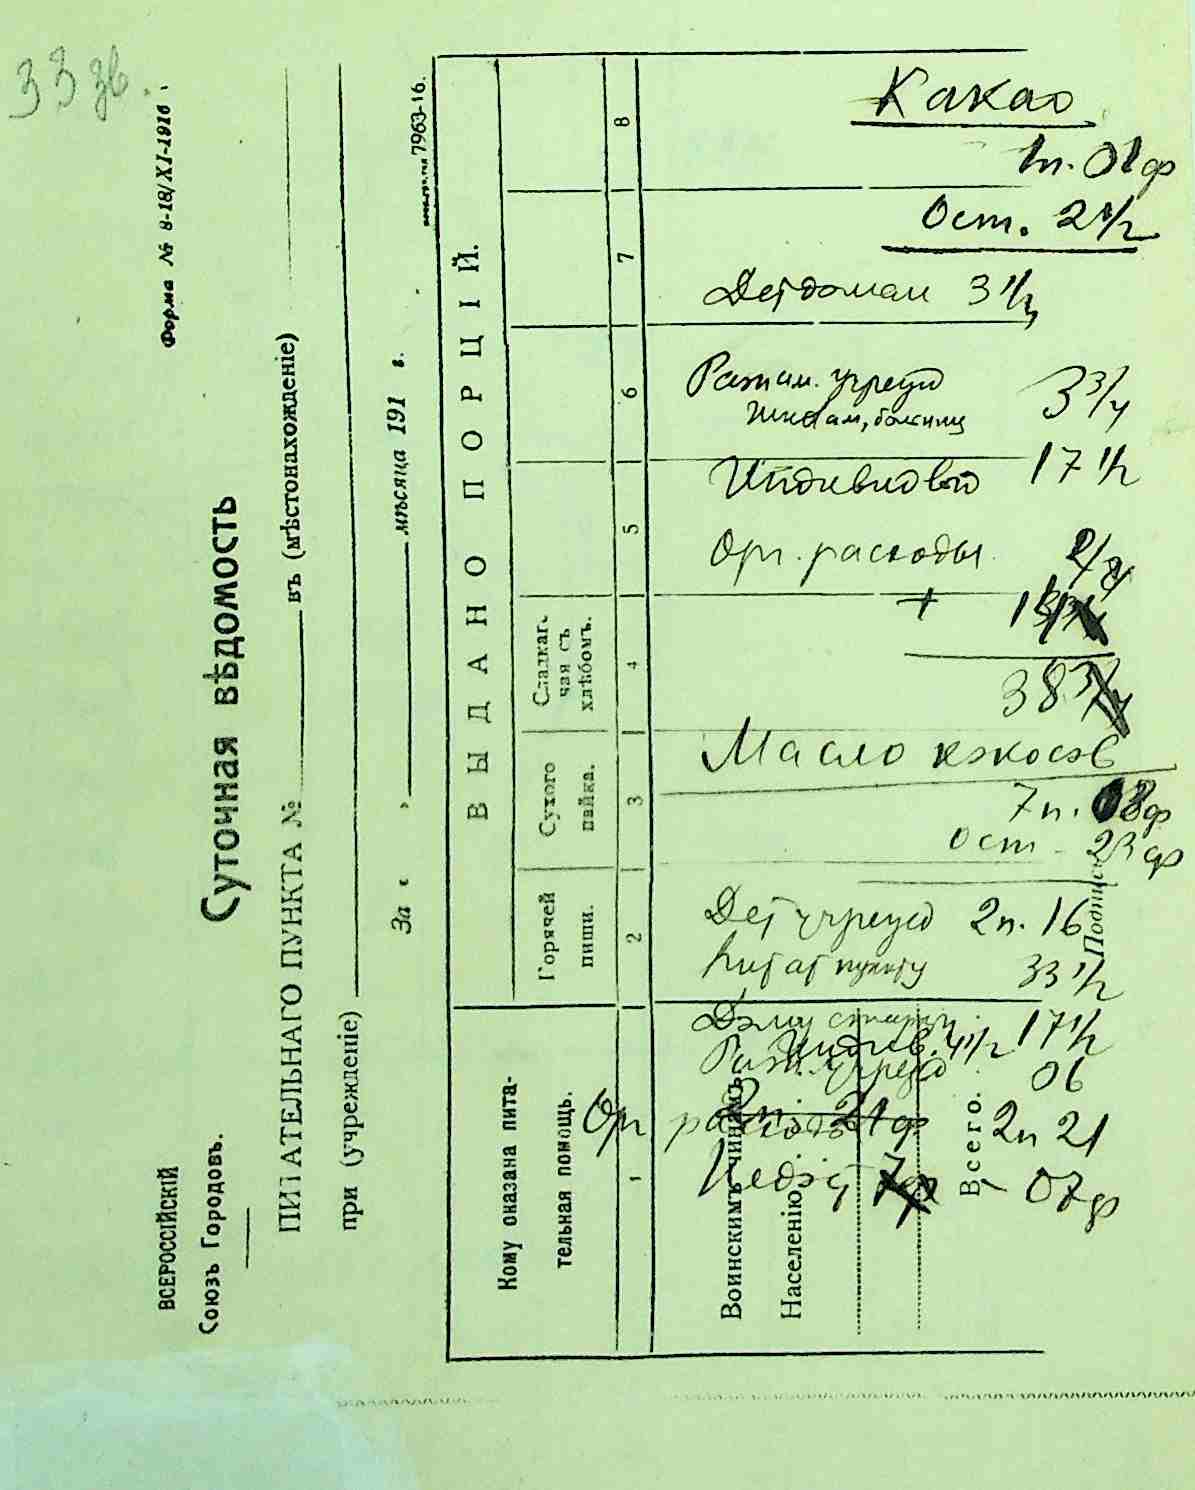 33 зв.
Форма № 8-18/XI-1916
7963-16.
ВСЕРОССІЙСКІЙ
Союзъ Городовъ.
Суточная вѣдомость
ПИТАТЕЛЬНАГО ПУНКТА № въ (мѣстонахожденіе)
при (учрежденіе)
За « » мѣсяца 191 г.
Кому оказана пита-
тельная помощь.
ВЫДАНО ПОРЦІЙ.
Горячей
пищи.
Сухого
пайка.
Сладкаг.
чая съ
хлѣбомъ.
1 2 3 4 5 6 7 8
Воинскимъ чинамъ
Населенію
Всего.
Подпись
Какао
1п. 01ф
Ост. 2 1/2
Детдомам 3 1/2
Разн. учрежд 3 3/4
школам, больниц
Индивидов 17 1/2
Орг. расходы
+
38 3/4
Масло кокосов
7п. 08ф
Ост - 23 ф
Дет учрежд 2п. 16
Питат пункту 33 1/2
Дому 17 1/2
Индив. 4 1/2
Разн. учрежд 06
2п. 21ф
Орг расходы 2п 21
Недост 07ф